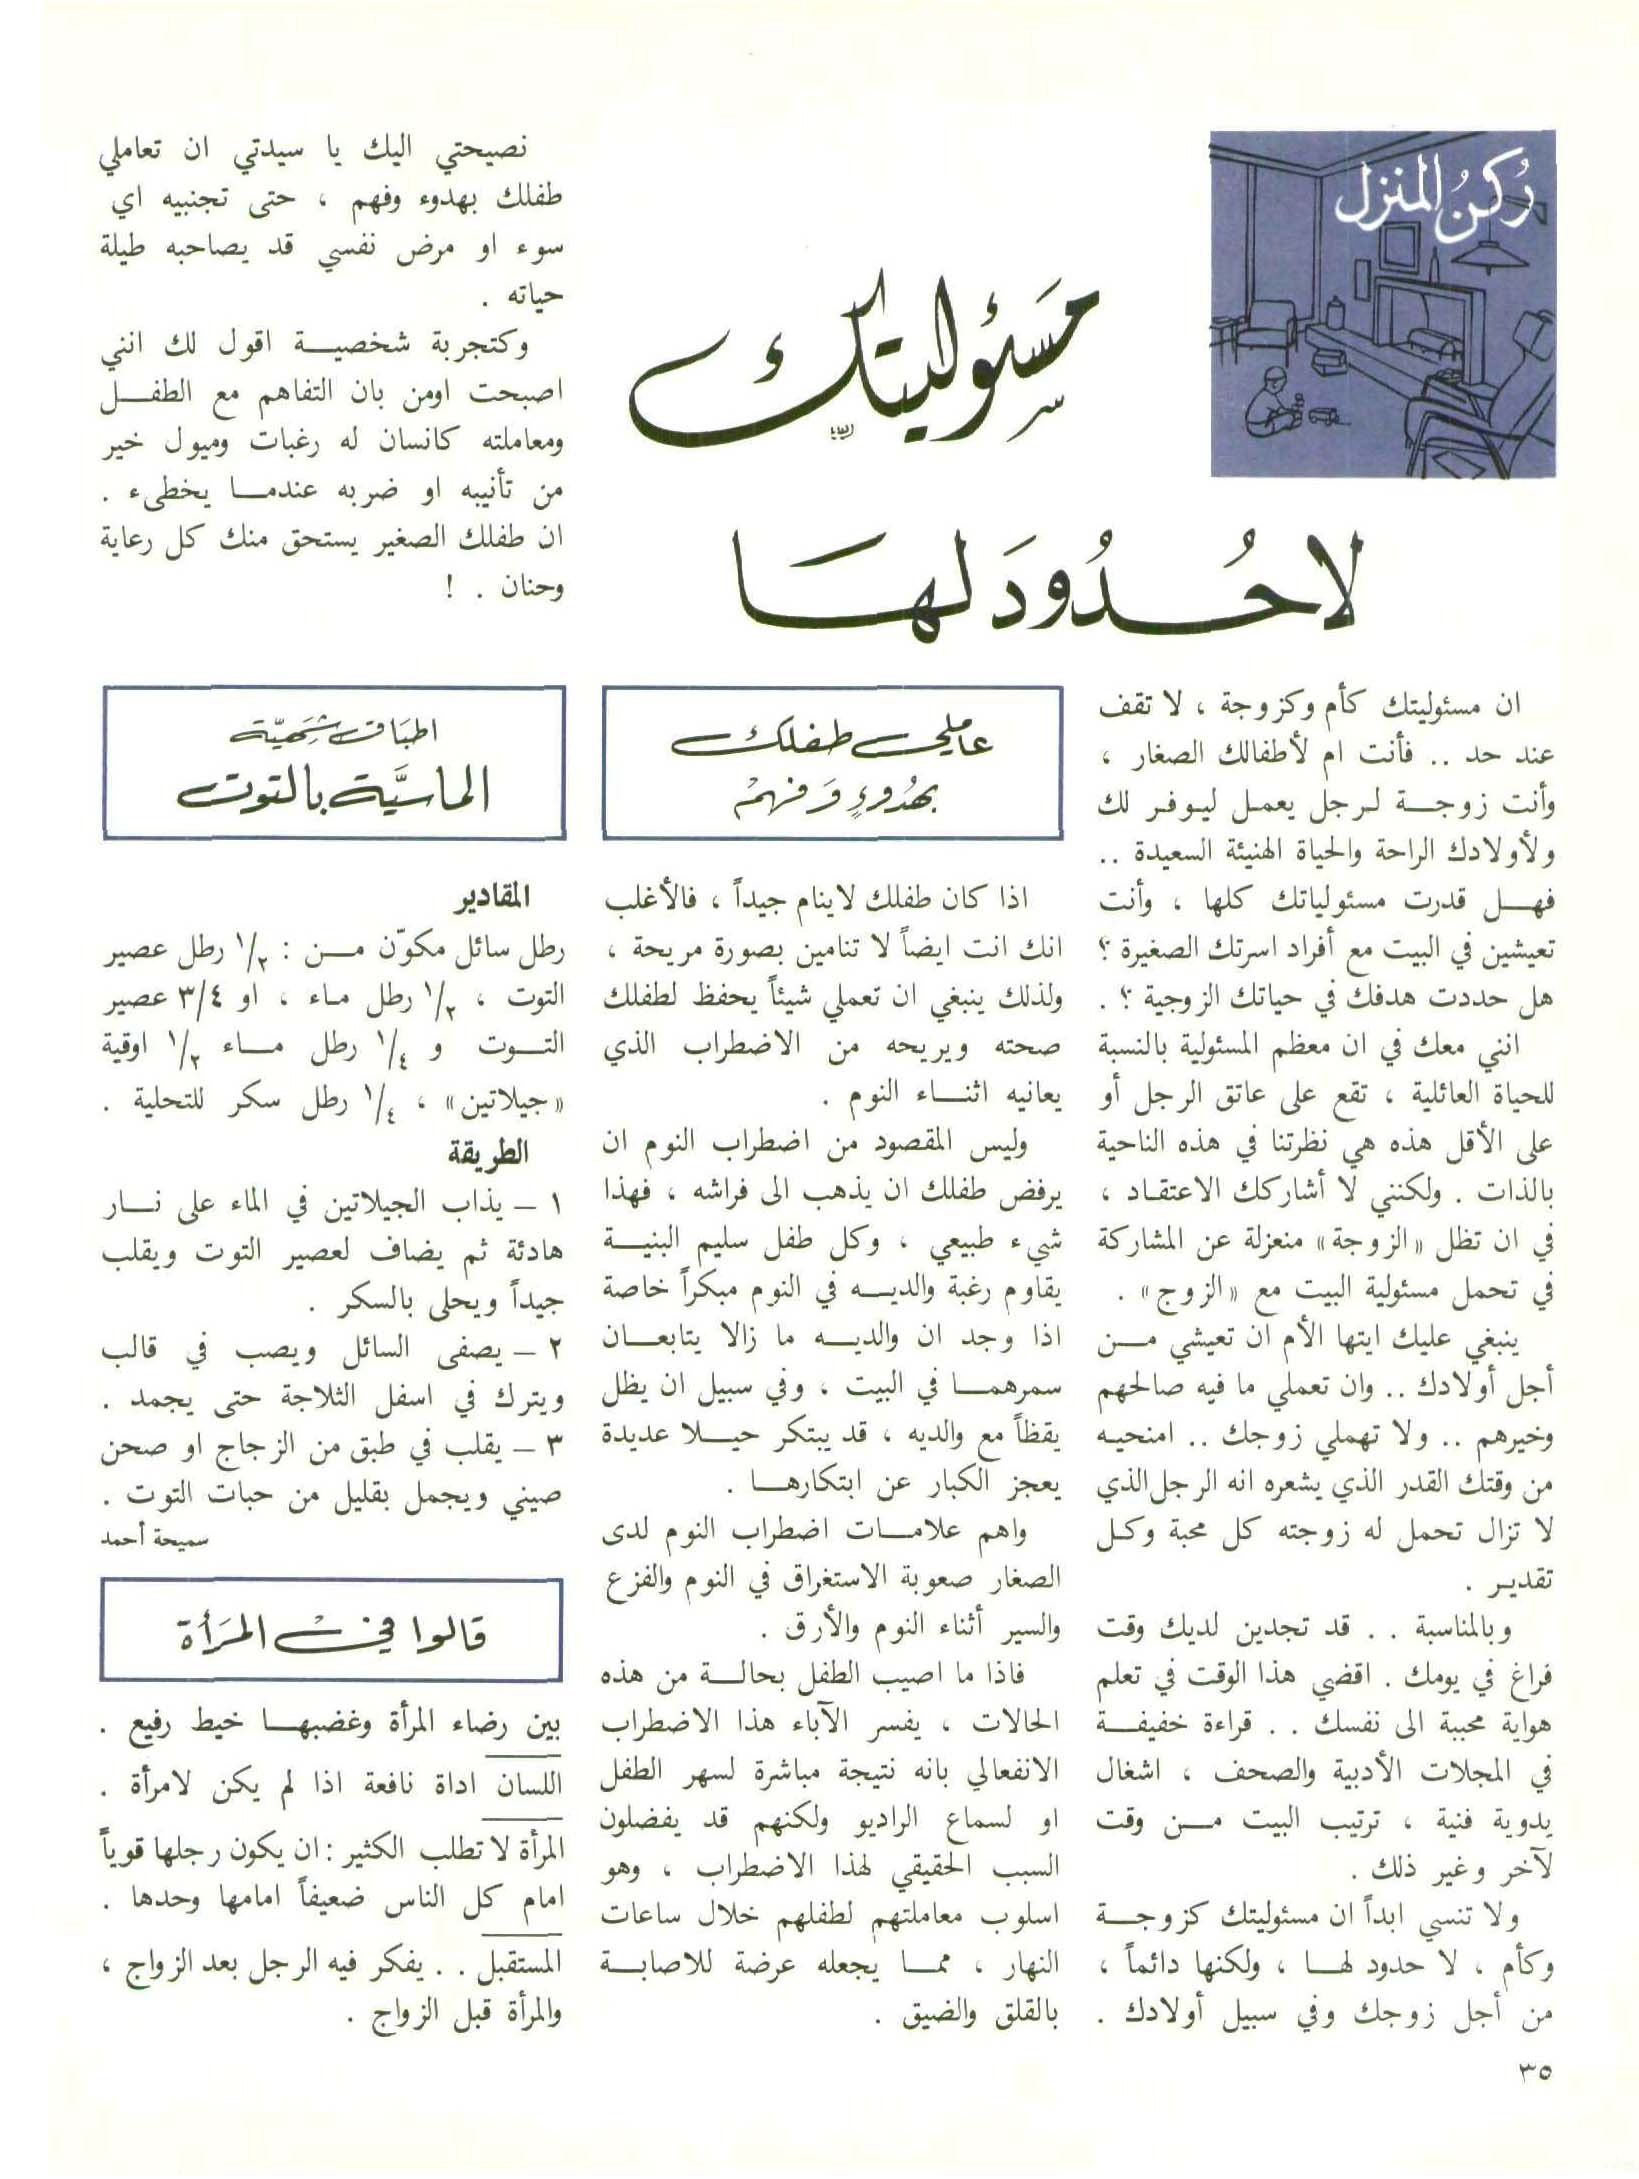 ركن المنزل
مسئوليتك
لا حدود لها
ان مسئوليتك كأم وكزوجة ، لا تقف
عند حد .. فأنت ام لأطفالك الصغار ،
وأنت زوجة لرجل يعمل ليوفر لك
ولأولادك الراحة والحياة الهنيئة السعيدة ..
فهل قدرت مسئولياتك كلها ، وأنت
تعيشين في البيت مع أفراد اسرتك الصغيرة ؟
هل حددت هدفك في حياتك الزوجية ؟ .
انني معك في ان معظم المسئولية بالنسبة
للحياة العائلية ، تقع على عاتق الرجل أو
على الأقل هذه هي نظرتنا في هذه الناحية
بالذات . ولكنني لا أشاركك الاعتقاد ،
في ان تظل «الزوجة» منعزلة عن المشاركة
في تحمل مسئولية البيت مع «الزوج» .
ينبغي عليك ايتها الأم ان تعيشي من
أجل أولادك .. وان تعملي ما فيه صالحهم
وخيرهم .. ولا تهملي زوجك .. امنحيه
من وقتك القدر الذي يشعره انه الرجل الذي
لا تزال تحمل له زوجته كل محبة وكل
تقدير .
وبالمناسبة . . قد تجدين لديك وقت
فراغ في يومك . اقضي هذا الوقت في تعلم
هواية محببة الى نفسك . . قراءة خفيفة
في المجلات الأدبية والصحف ، اشغال
يدوية فنية ، ترتيب البيت من وقت
لآخر وغير ذلك .
ولا تنسي ابداً ان مسئوليتك كزوجة
وكأم ، لا حدود لها ، ولكنها دائماً ،
من أجل زوجك وفي سبيل أولادك .
عاملي طفلك
بهدوءٍ وفهم
اذا كان طفلك لاينام جيداً ، فالأغلب
انك انت ايضاً لا تنامين بصورة مريحة ،
ولذلك ينبغي ان تعملي شيئاً يحفظ لطفلك
صحته ويريحه من الاضطراب الذي
يعانيه اثناء النوم .
وليس المقصود من اضطراب النوم ان
يرفض طفلك ان يذهب الى فراشه ، فهذا
شيء طبيعي ، وكل طفل سليم البنية
يقاوم رغبة والديه في النوم مبكراً خاصة
اذا وجد ان والديه ما زالا يتابعان
سمرهما في البيت ، وفي سبيل ان يظل
يقظاً مع والديه ، قد يبتكر حيلا عديدة
يعجز الكبار عن ابتكارها .
واهم علامات اضطراب النوم لدى
الصغار صعوبة الاستغراق في النوم والفزع
والسير أثناء النوم والأرق .
فاذا ما اصيب الطفل بحالة من هذه
الحالات ، يفسر الآباء هذا الاضطراب
الانفعالي بانه نتيجة مباشرة لسهر الطفل
او لسماع الراديو ولكنهم قد يفضلون
السبب الحقيقي لهذا الاضطراب ، وهو
اسلوب معاملتهم لطفلهم خلال ساعات
النهار ، مما يجعله عرضة للاصابة
بالقلق والضيق .
نصيحتي اليك يا سيدتي ان تعاملي
طفلك بهدوء وفهم ، حتى تجنبيه اي
سوء او مرض نفسي قد يصاحبه طيلة
حياته .
وكتجربة شخصية اقول لك انني
اصبحت اومن بان التفاهم مع الطفل
ومعاملته كانسان له رغبات وميول خير
من تأنيبه او ضربه عندما يخطىء .
ان طفلك الصغير يستحق منك كل رعاية
وحنان . !
اطباق شهيّة
الماسيَّة بالتوت
المقادير
رطل سائل مكوّن من : ١/٢ رطل عصير
التوت ، ١/٢ رطل ماء ، او ٣/٤ عصير
التوت و ١/٤ رطل ماء ١/٢ اوقية
«جيلاتين» ، ١/٤ رطل سكر للتحلية .
الطريقة
١ – يذاب الجيلاتين في الماء على نار
هادئة ثم يضاف لعصير التوت ويقلب
جيداً ويحلى بالسكر .
٢ – يصفى السائل ويصب في قالب
ويترك في اسفل الثلاجة حتى يجمد .
٣ – يقلب في طبق من الزجاج او صحن
صيني ويجمل بقليل من حبات التوت .
سميحة أحمد
قالوا في المرأة
بين رضاء المرأة وغضبها خيط رفيع .
اللسان اداة نافعة اذا لم يكن لامرأة .
المرأة لا تطلب الكثير : ان يكون رجلها قوياً
امام كل الناس ضعيفاً امامها وحدها .
المستقبل . . يفكر فيه الرجل بعد الزواج ،
والمرأة قبل الزواج .
٣٥